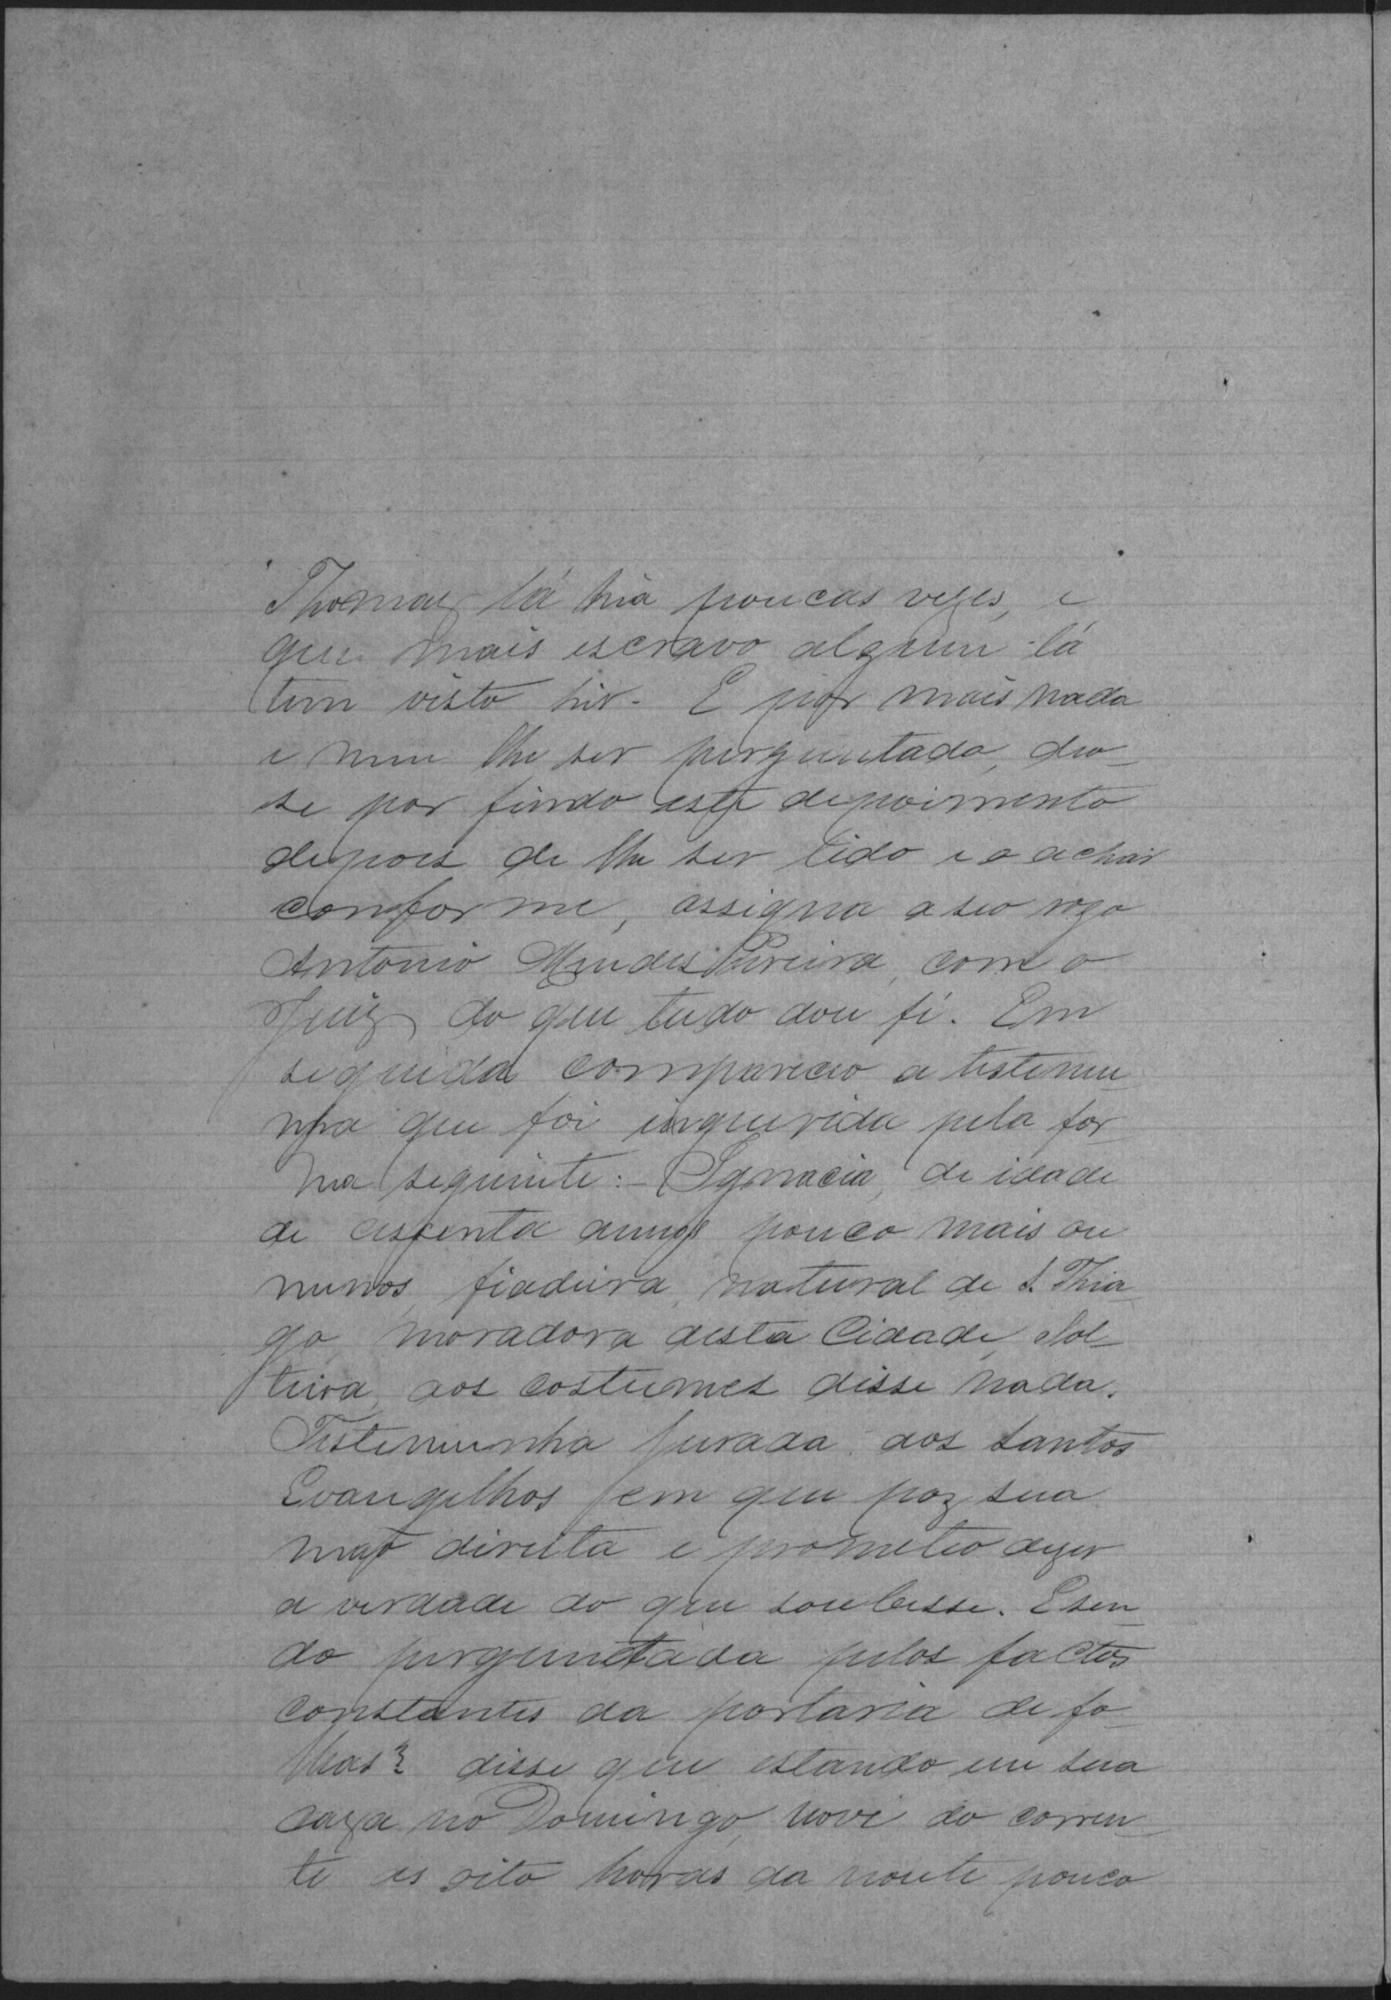 Thomaz lá hia poucas vezes, e
que mais escravo algum lá
tem visto hir. E por mais nada
e nem lhe ser perguntado, deo-
se por findo este depoimento
depois de lhe ser lido e o achar
conforme, assigna a seo rogo
Antonio Mendes Pereira, com o
Juiz do que tudo dou fé. Em
seguida compareceo a testemu-
nha que foi inquerida pela for-
ma seguinte:- Ignacia, de idade
de cessenta annos pouco mais ou
menos, fiadeira, natural de S. Thia-
go, moradora desta Cidade, Sol-
teira, aos costumes disse nada.
Testemunha jurada aos Santos
Evangelhos em que poz sua
mão direita e prometeo dizer
a verdade do que soubesse. E sen-
do perguntada pelos factos
constantes da portaria de fo-
lhas 2 disse que estando em sua
caza no Domingo, nove do corren-
te as oito horas da noute pouco